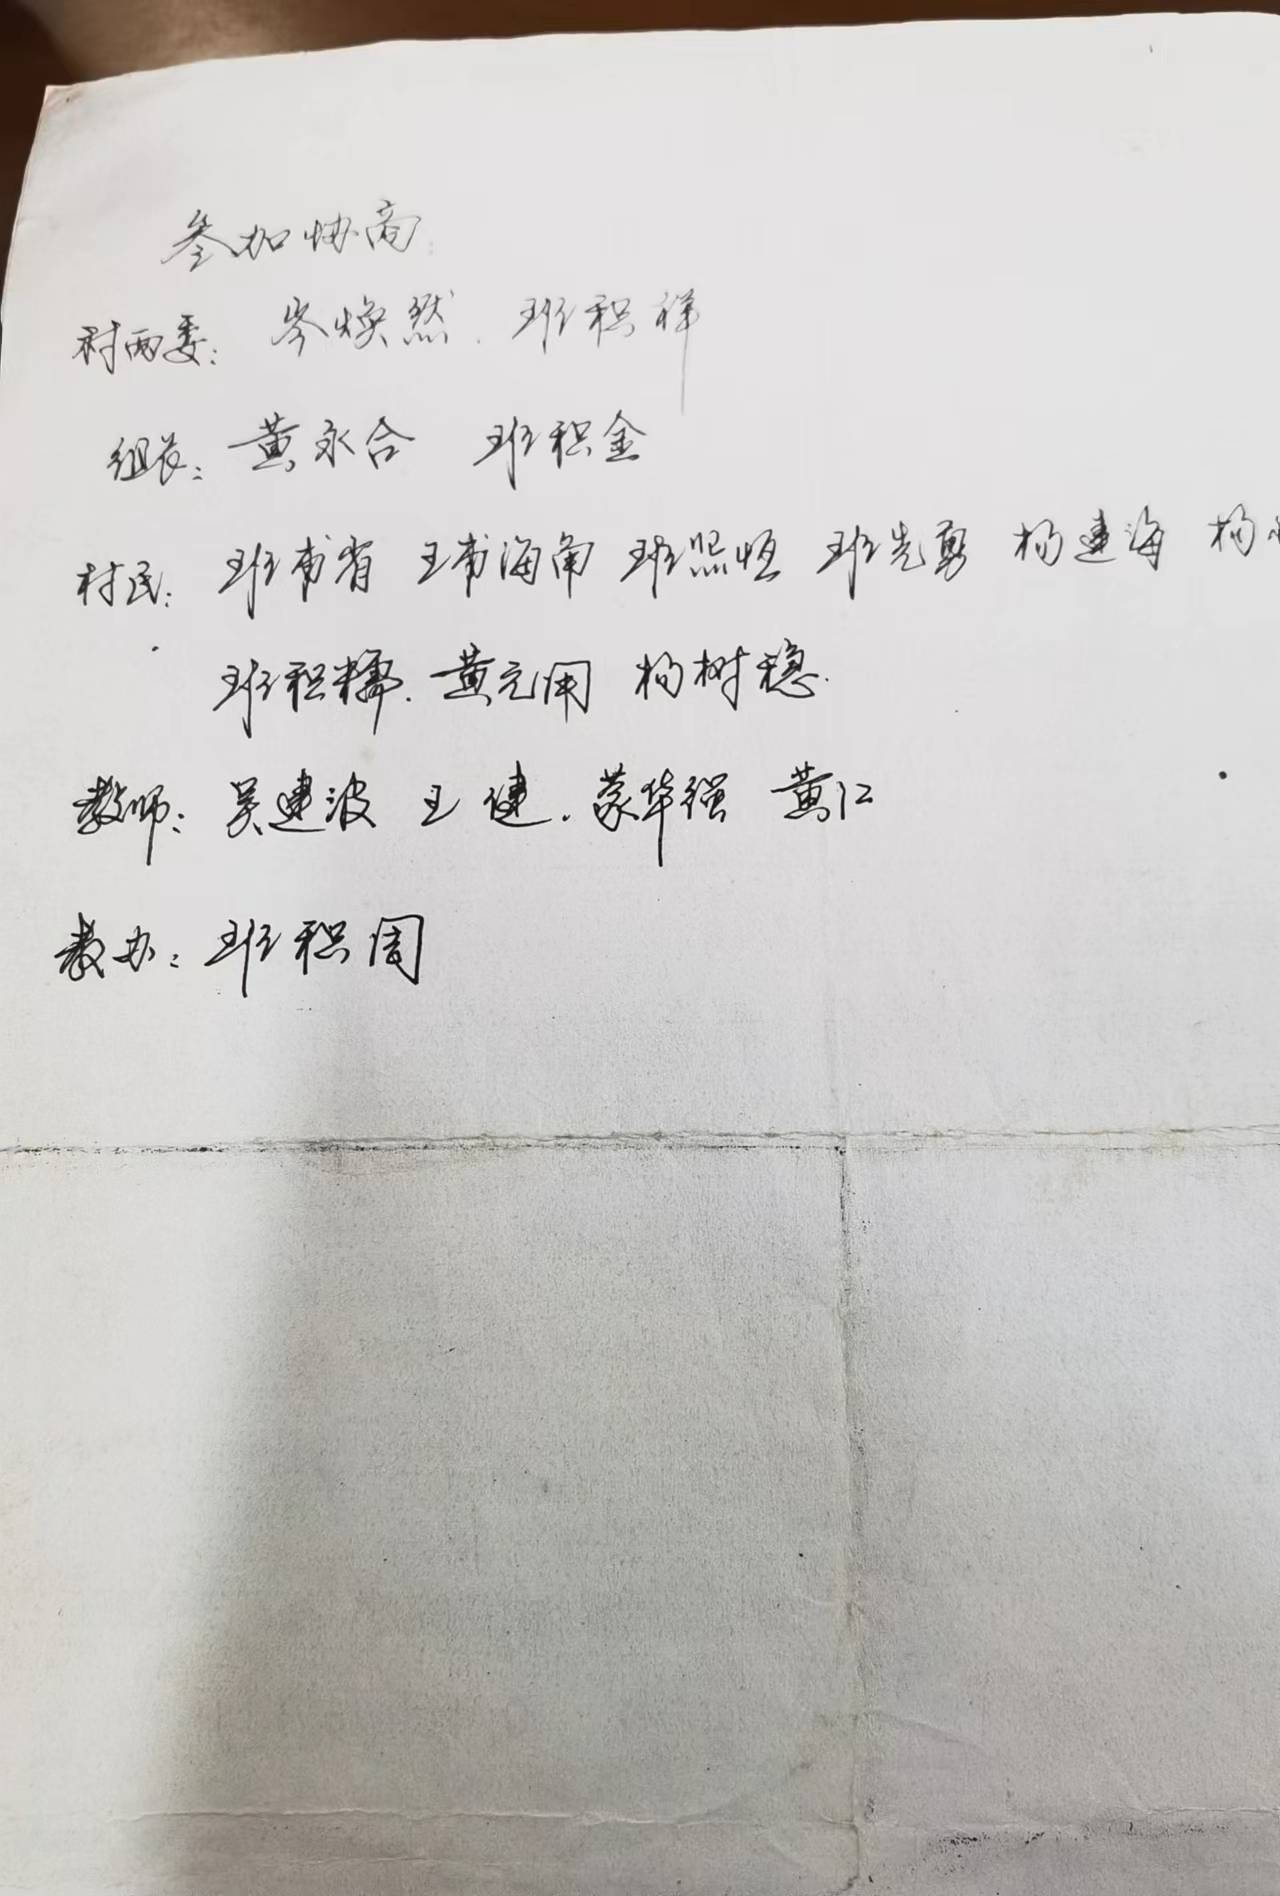 参加协商
村两委：岑焕然、班积祥
组长：黄永合 班积金
村民：班甫省 王甫海角 班照恒 班先勇 杨建海 杨
班积糯、黄元用 杨树稳
教师：吴建波 王健、蒙华强 黄仁
教办：班积周